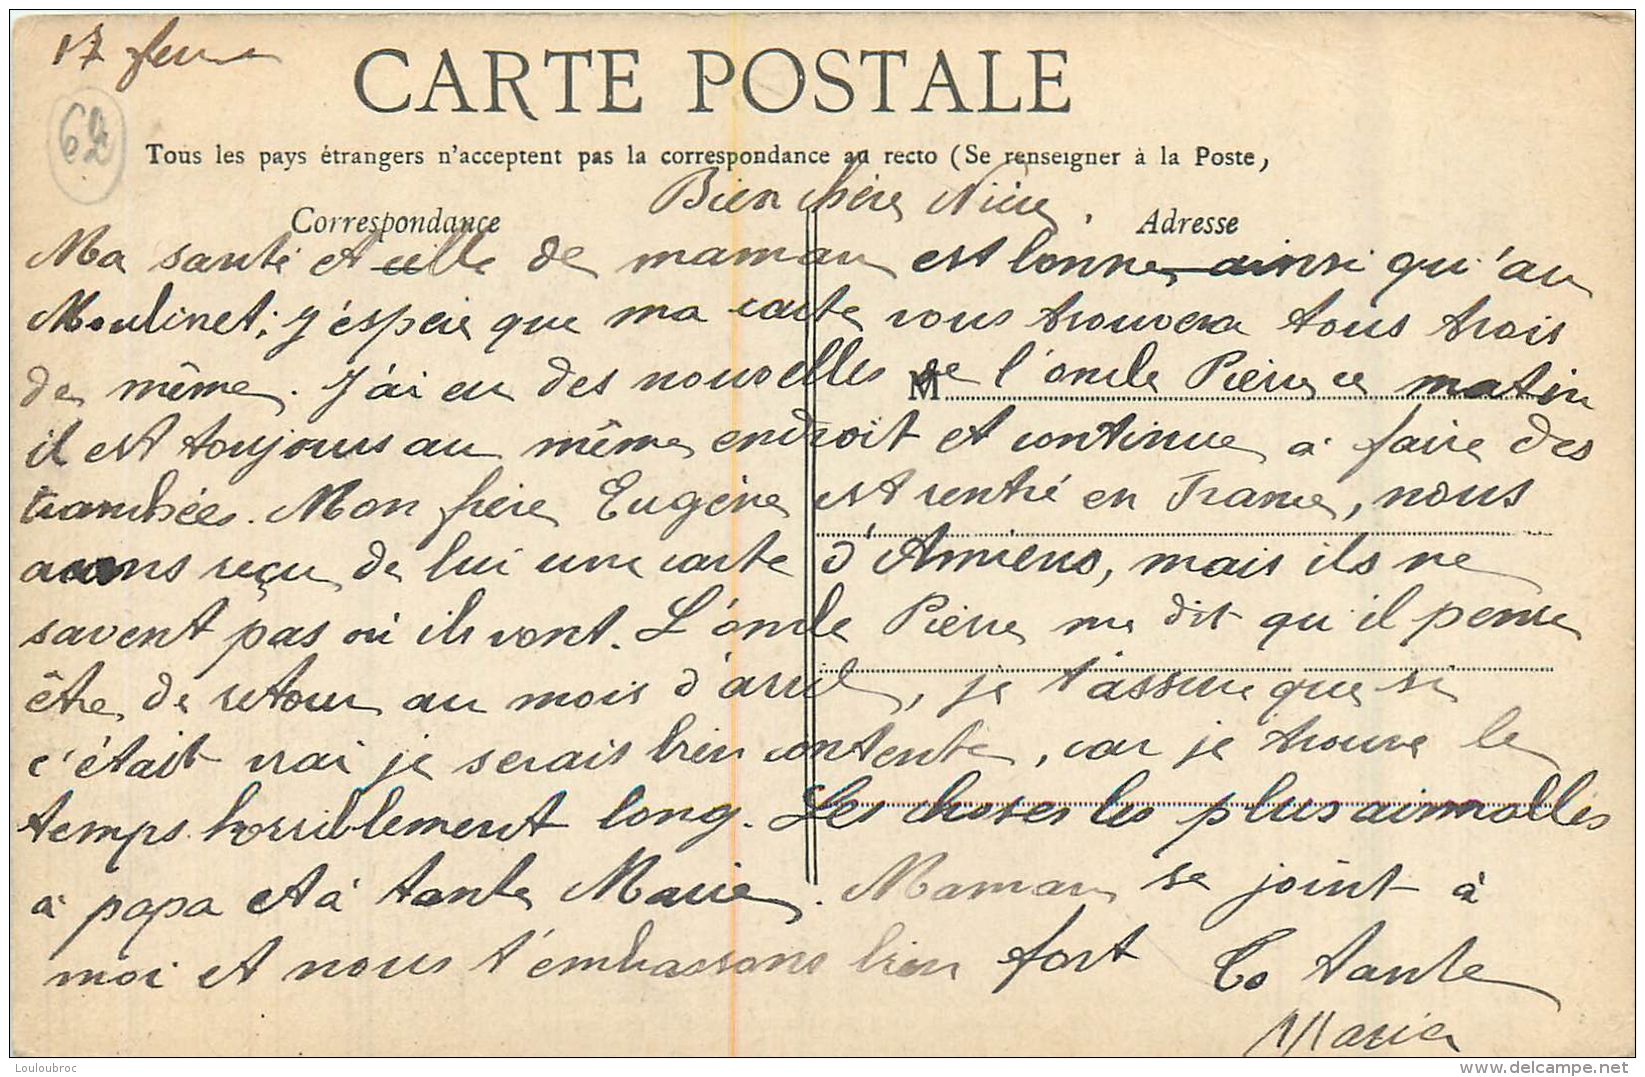 17 fev
62
CARTE POSTALE
Tous les pays étrangers n'acceptent pas la correspondance au recto (Se renseigner à la Poste,
Correspondance
Adresse
Bien chère Nièce,
Ma santé et celle de maman est bonne, ainsi qu'au
Moulinet; j'espère que ma carte vous trouvera tous trois
de même. J'ai eu des nouvelles de l'oncle Pierre ce matin
M
il est toujours au même endroit et continue à faire des
tranchées. Mon frère Eugène est rentré en France, nous
avons reçu de lui une carte d'Amiens, mais ils ne
savent pas où ils vont. L'oncle Pierre me dit qu'il pense
être de retour au mois d'avril, je t'assure que si
c'était vrai je serais bien contente, car je trouve le
temps horriblement long. Les choses les plus aimables
à papa et à tante Marie. Maman se joint à
moi et nous t'embrassons bien fort Ta tante
Marie
Louloubroc
delcampe.net